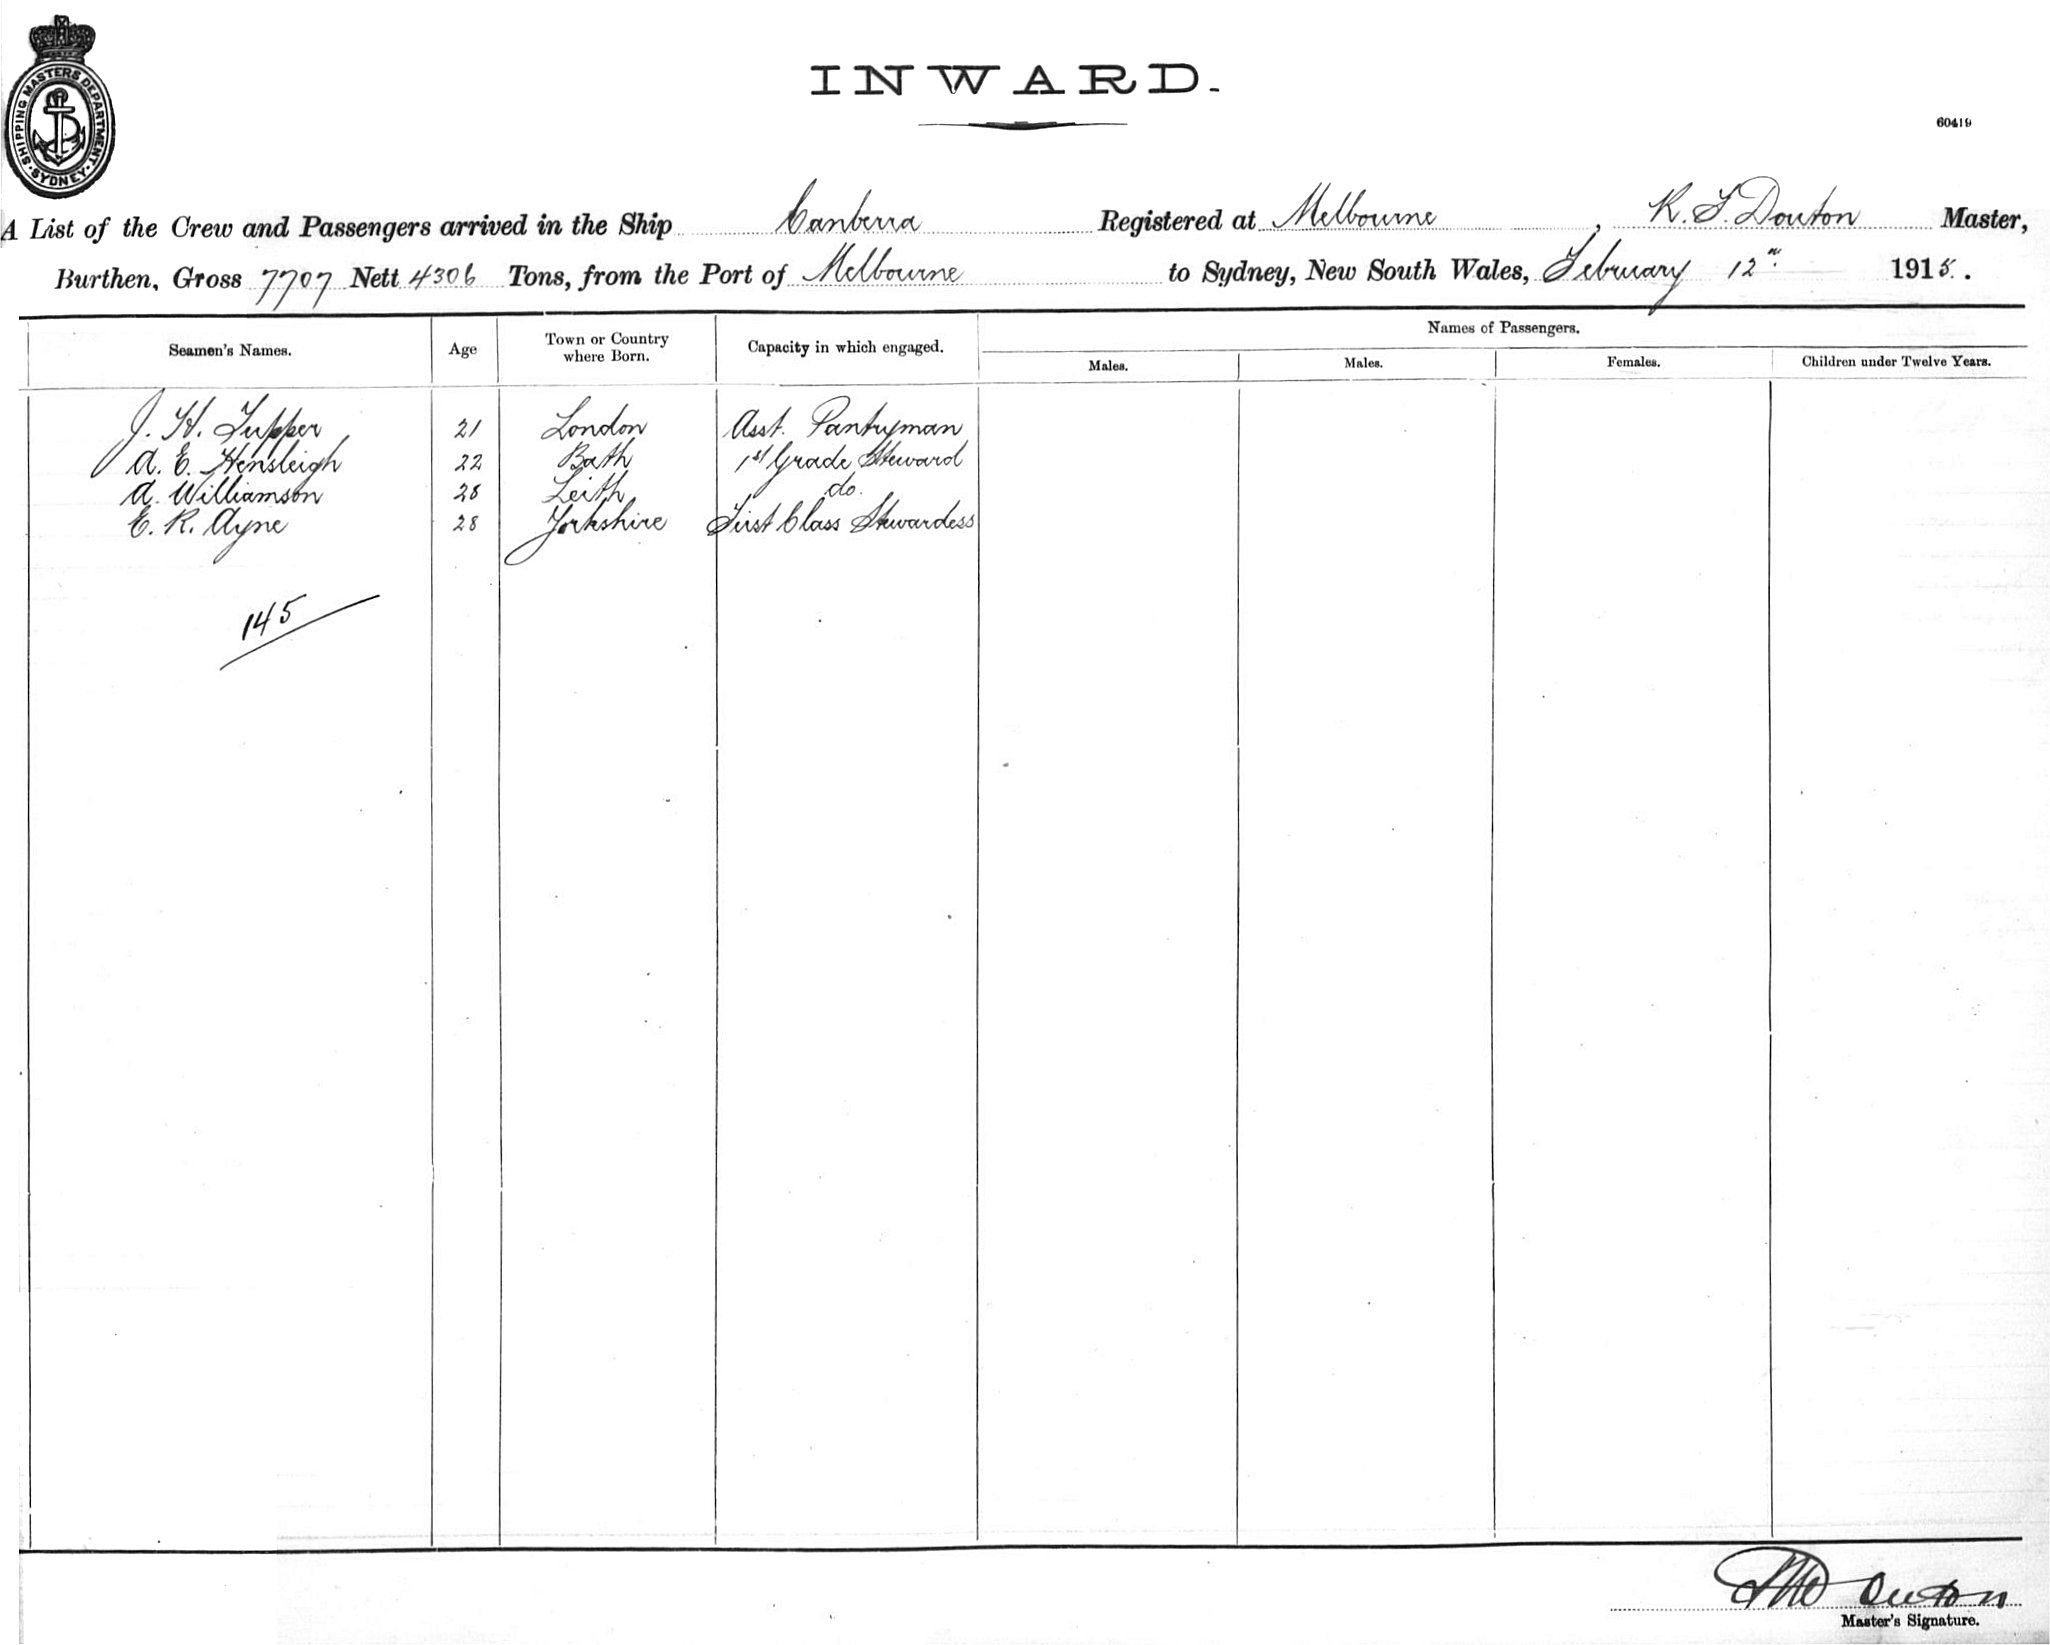 SHIPPING MASTERS DEPARTMENT
SYDNEY
INWARD.
60419
A List of the Crew and Passengers arrived in the Ship Canberra Registered at Melbourne, R. F. Douton Master,
Burthen, Gross 7707 Nett 4306 Tons, from the Port of Melbourne to Sydney, New South Wales, February 12th 1915.
Names of Passengers.
Seamen's Names. Age Town or Country where Born. Capacity in which engaged. Males. Males. Females. Children under Twelve Years.
J. H. Tupper 21 London Asst. Pantryman
A. E. Hensleigh 22 Bath 1st Grade Steward
A. Williamson 28 Leith do.
E. R. Ayne 28 Yorkshire First Class Stewardess
145
Douton
Master's Signature.